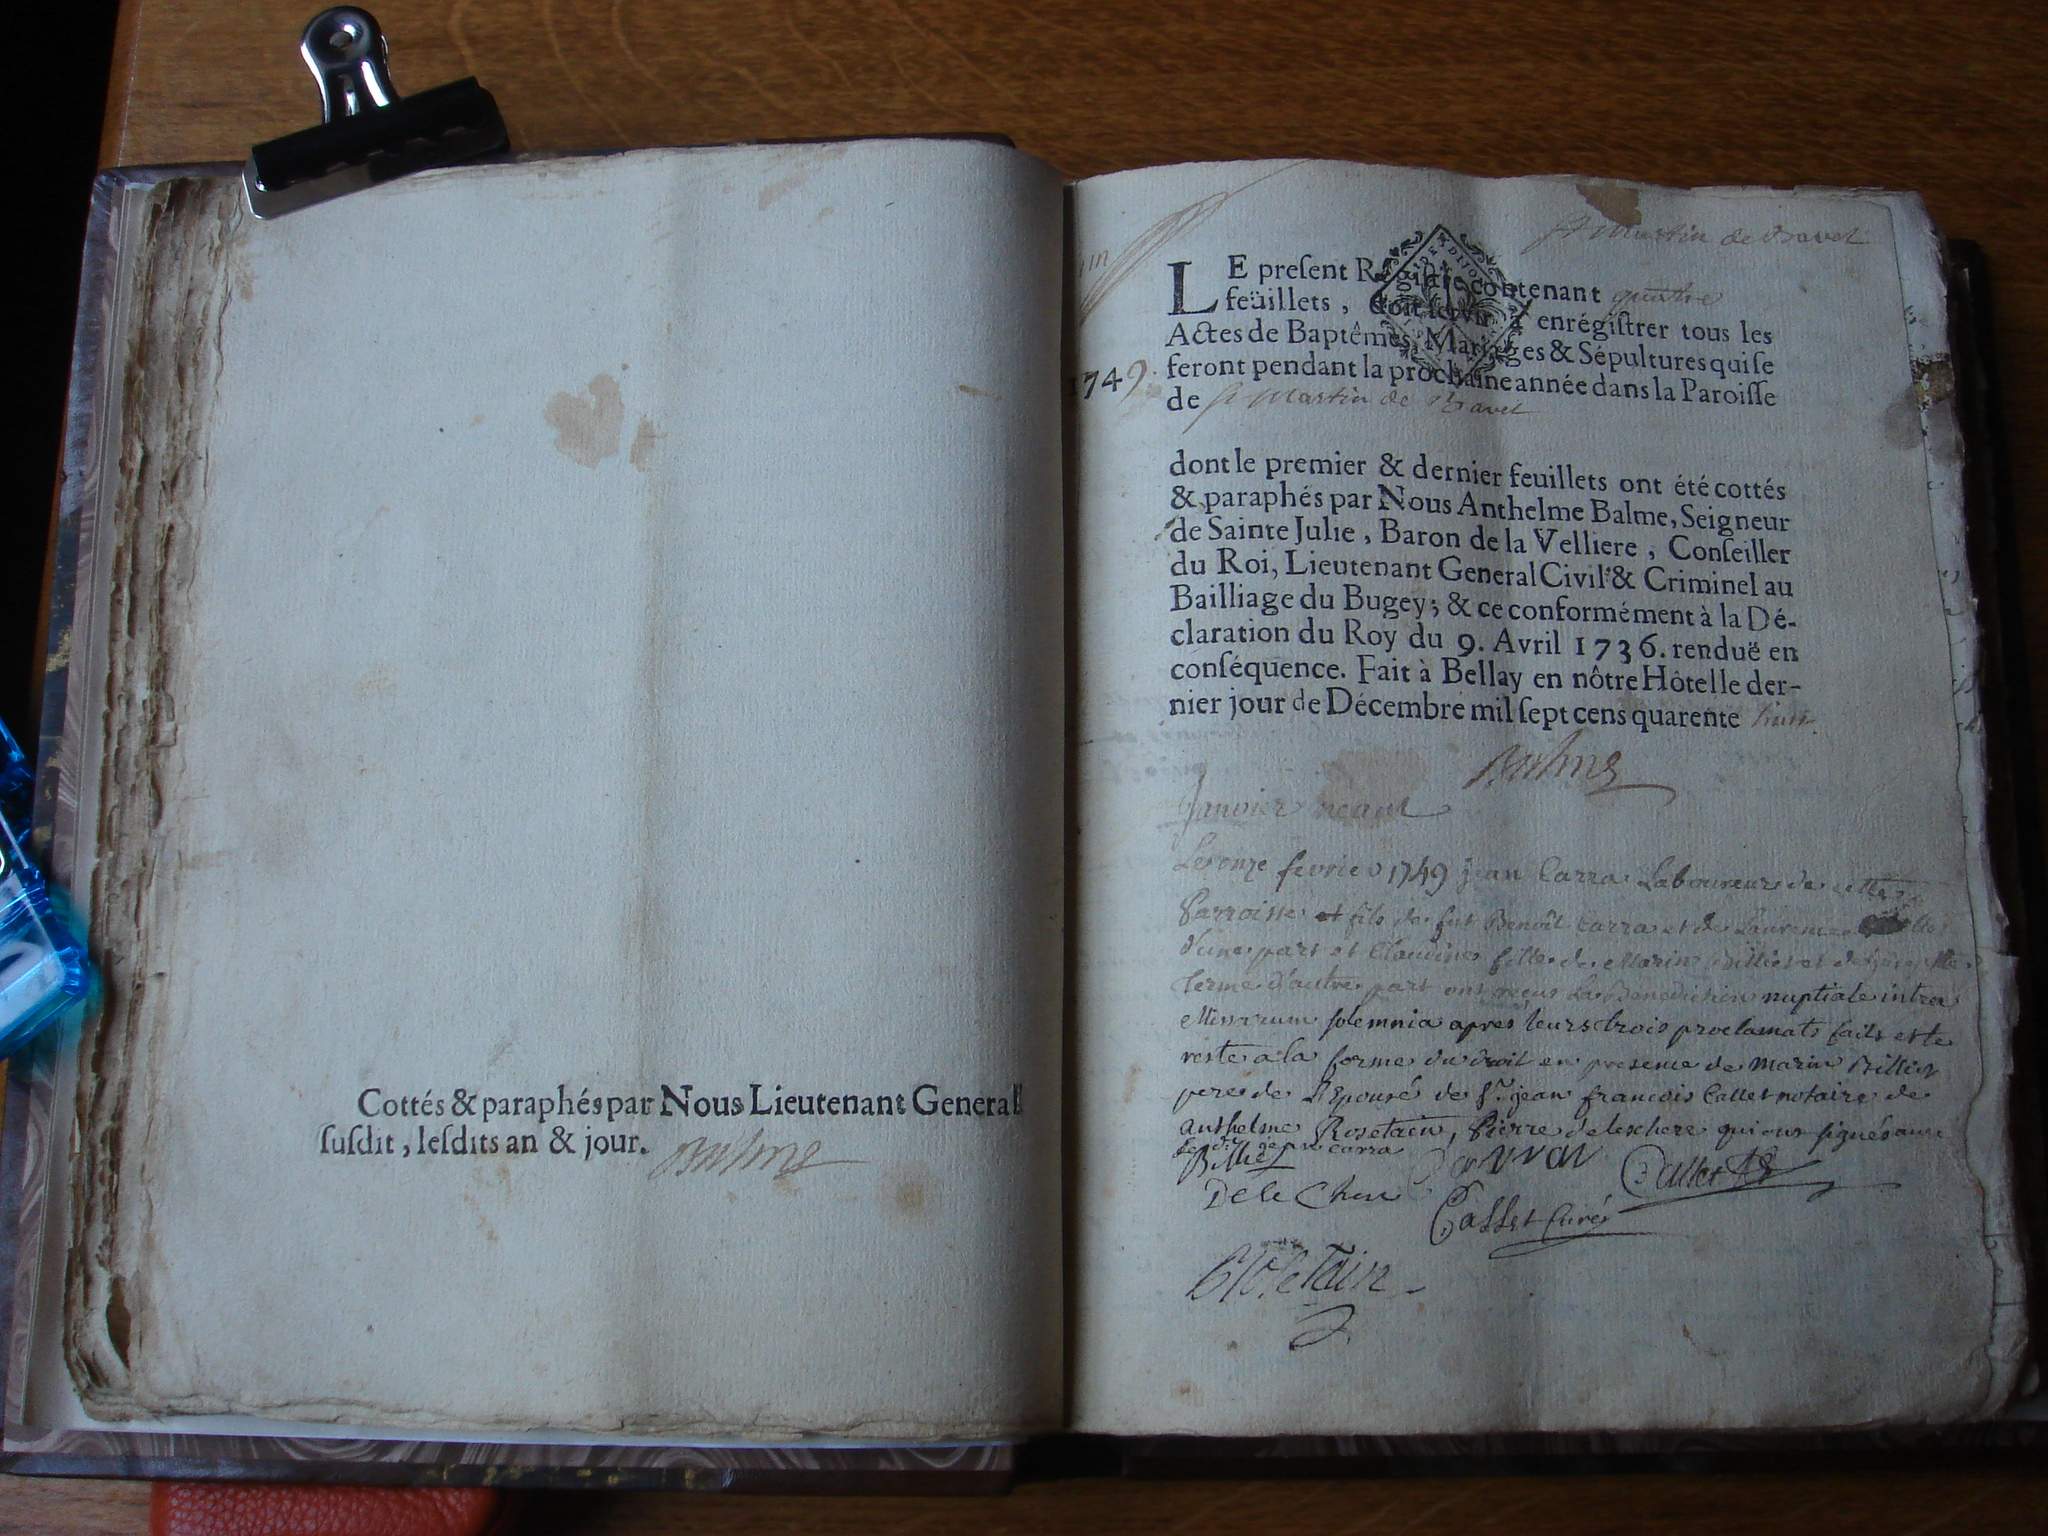 Cottés & paraphés par Nous Lieutenant General
ſuſdit, leſdits an & jour. Balme
St Martin de Bavel
LE preſent Régiſtre contenant quatre
feüillets, doit ſervir à enrégiſtrer tous les
Actes de Baptêmes, Mariages & Sépultures qui ſe
1749. feront pendant la prochaine année dans la Paroiſſe
de St Martin de Bavel
dont le premier & dernier feuillets ont été cottés
& paraphés par Nous Anthelme Balme, Seigneur
de Sainte Julie, Baron de la Velliere, Conſeiller
du Roi, Lieutenant General Civil & Criminel au
Bailliage du Bugey; & ce conformément à la Dé-
claration du Roy du 9. Avril 1736. renduë en
conſéquence. Fait à Bellay en nôtre Hôtel le der-
nier jour de Décembre mil ſept cens quarente huit
Balme
Janvier neant
Le onze fevrier 1749 jean Carra Laboureur de cette
Parroisse et fils de fut Benoît Carra et de Laurence
d'une part et Claudine fille de Marin Billiet et de
terme d'autre part ont reçus La Bénédiction nuptiale intra
Missarum solemnia apres leurs trois proclamats faits et le
reste a la forme du droit en presence de Marin Billiet
pere de L'Epouse de Sr. jean francois Callet notaire de
anthelme Rosetain, Pierre delechere qui ont signés avec
Billiet Callet
De le Chere
Callet Curé